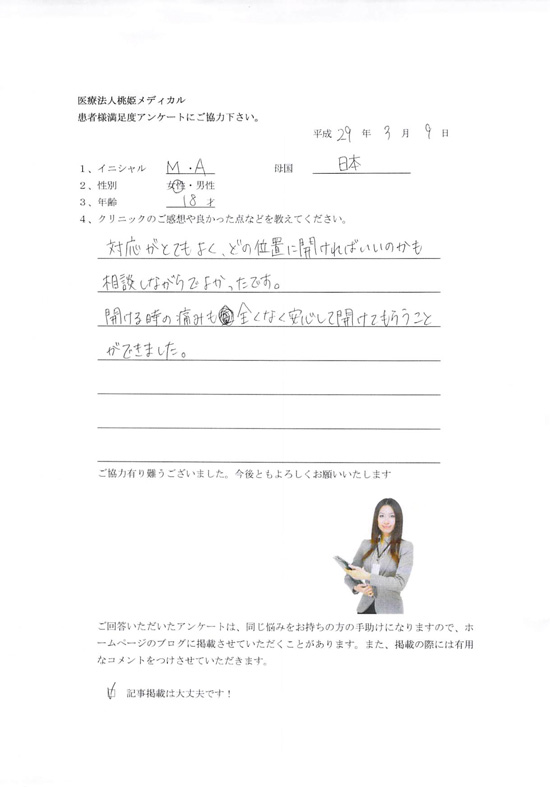 医療法人桃姫メディカル
患者様満足度アンケートにご協力下さい。
平成 29 年 3 月 9 日
1、イニシャル M・A 母国 日本
2、性別 女性・男性
3、年齢 18才
4、クリニックのご感想や良かった点などを教えてください。
対応がとてもよく、どの位置に開ければいいのかも
相談しながらでよかったです。
開ける時の痛みも全くなく安心して開けてもらうこと
ができました。
ご協力有り難うございました。今後ともよろしくお願いいたします
ご回答いただいたアンケートは、同じ悩みをお持ちの方の手助けになりますので、ホ
ームページのブログに掲載させていただくことがあります。また、掲載の際には有用
なコメントをつけさせていただきます。
記事掲載は大丈夫です！